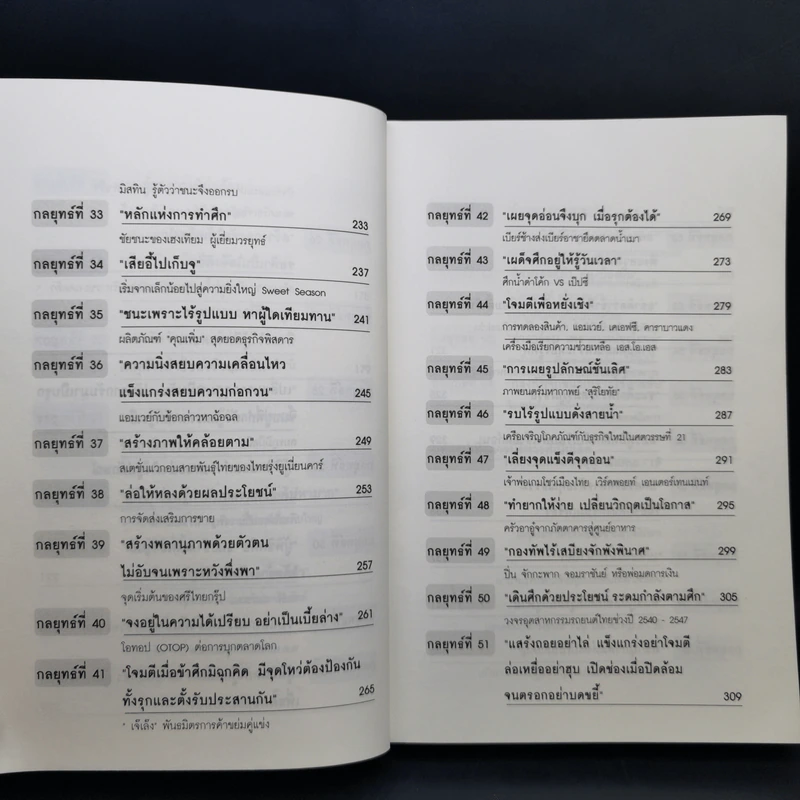 มิสทิน รู้ตัวว่าชนะจึงออกรบ
กลยุทธ์ที่ 33 "หลักแห่งการทำศึก" 233
ชัยชนะของเฮงเทียม ผู้เยี่ยมวรยุทธ์
กลยุทธ์ที่ 34 "เสียอี้ไปเก็บจู" 237
เริ่มจากเล็กน้อยไปสู่ความยิ่งใหญ่ Sweet Season
กลยุทธ์ที่ 35 "ชนะเพราะไร้รูปแบบ หาผู้ใดเทียมทาน" 241
ผลิตภัณฑ์ "คุณเพิ่ม" สุดยอดธุรกิจพิสดาร
กลยุทธ์ที่ 36 "ความนิ่งสยบความเคลื่อนไหว
แข็งแกร่งสยบความก่อกวน" 245
แอมเวย์กับข้อกล่าวหาฉ้อฉล
กลยุทธ์ที่ 37 "สร้างภาพให้คล้อยตาม" 249
สเตชั่นแวกอนสายพันธุ์ไทยของไทยรุ่งยูเนี่ยนคาร์
กลยุทธ์ที่ 38 "ล่อให้หลงด้วยผลประโยชน์" 253
การจัดส่งเสริมการขาย
กลยุทธ์ที่ 39 "สร้างพลานุภาพด้วยตัวตน
ไม่อับจนเพราะหวังพึ่งพา" 257
จุดเริ่มต้นของศรีไทยกรุ๊ป
กลยุทธ์ที่ 40 "จงอยู่ในความได้เปรียบ อย่าเป็นเบี้ยล่าง" 261
โอทอป (OTOP) ต่อการบุกตลาดโลก
กลยุทธ์ที่ 41 "โจมตีเมื่อข้าศึกมิฉุกคิด มีจุดโหว่ต้องป้องกัน
ทั้งรุกและตั้งรับประสานกัน" 265
" เจ๊เล้ง" พันธมิตรการค้าขย่มคู่แข่ง
กลยุทธ์ที่ 42 "เผยจุดอ่อนจึงบุก เมื่อรุกต้องได้" 269
เบียร์ช้างส่งเบียร์อาชายึดตลาดน้ำเมา
กลยุทธ์ที่ 43 "เผด็จศึกอยู่ให้รู้วันเวลา" 273
ศึกน้ำดำโค้ก VS เป๊ปซี่
กลยุทธ์ที่ 44 "โจมตีเพื่อหยั่งเชิง" 279
การทดลองสินค้า. แอมเวย์. เคเอฟซี. คาราบาวแดง
เครื่องมือเรียกความช่วยเหลือ เอส.โอ.เอส
กลยุทธ์ที่ 45 "การเผยรูปลักษณ์ชั้นเลิศ" 283
ภาพยนตร์มหากาพย์ "สุริโยทัย"
กลยุทธ์ที่ 46 "รบไร้รูปแบบดั่งสายน้ำ" 287
เครือเจริญโภคภัณฑ์กับธุรกิจใหม่ในศตวรรษที่ 21
กลยุทธ์ที่ 47 "เลี่ยงจุดแข็งตีจุดอ่อน" 291
เจ้าพ่อเกมโชว์เมืองไทย เวิร์คพอยท์ เอนเตอร์เทนเมนท์
กลยุทธ์ที่ 48 "ทำยากให้ง่าย เปลี่ยนวิกฤตเป็นโอกาส" 295
ครัวอาอู๋จากภัตตาคารสู่ศูนย์อาหาร
กลยุทธ์ที่ 49 "กองทัพไร้เสบียงจักพังพินาศ" 299
ปิ่น จักกะพาก จอมราชันย์ หรือพ่อมดการเงิน
กลยุทธ์ที่ 50 "เดินศึกด้วยประโยชน์ ระดมกำลังตามศึก" 305
วงจรอุตสาหกรรมรถยนต์ไทยช่วงปี 2540 - 2547
กลยุทธ์ที่ 51 "แสร้งถอยอย่าไล่ แข็งแกร่งอย่าโจมตี
ล่อเหยื่ออย่าฮุบ เปิดช่องเมื่อปิดล้อม
จนตรอกอย่าบดขยี้" 309